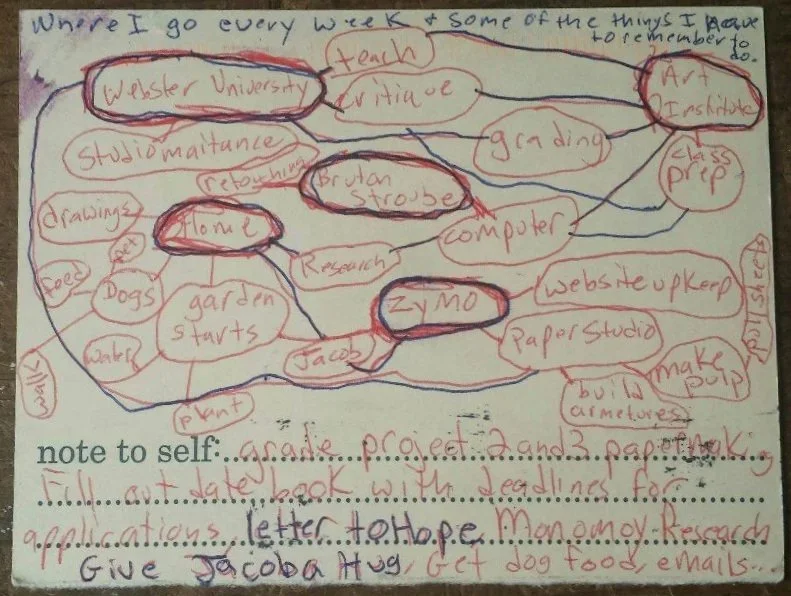 Where I go every week + some of the things I have
to remember to
do.
teach
Webster University
critique
Art
Institute
Studiomaitance
grading
class
prep
retouching
Bruton
Stroube
drawings
Home
computer
pet
Research
feed
Dogs
garden
starts
ZyMO
website upkeep
pull sheets
Paper Studio
water
Jacob
make
pulp
walk
plant
build
armetures
note to self: grade project 2 and 3 papermaking
Fill out date book with deadlines for
applications, letter to Hope, Monomoy-Research
Give Jacob a Hug, Get dog food, emails...